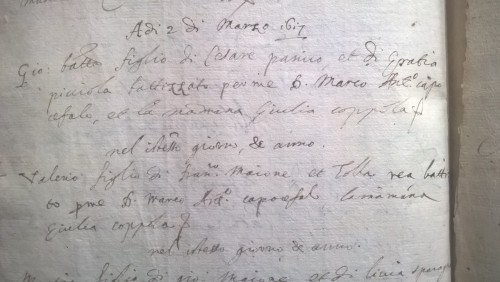 Adi 2 di Marzo 1617
Gio: batta figlio di Cesare panico, et di Gratia
piccola battizzato per me D. Marco Ant.º capo
efalo, et la mamena Giulia coppola
nel istesso giorno, & anno.
Valerio figlio di Fran.co Maione et Tolla rea batti
to p me D. Marco Ant.º capoefal la mamena
Giulia coppola
nel istesso giorno, & anno.
figlio di Gio: Maione et di livia